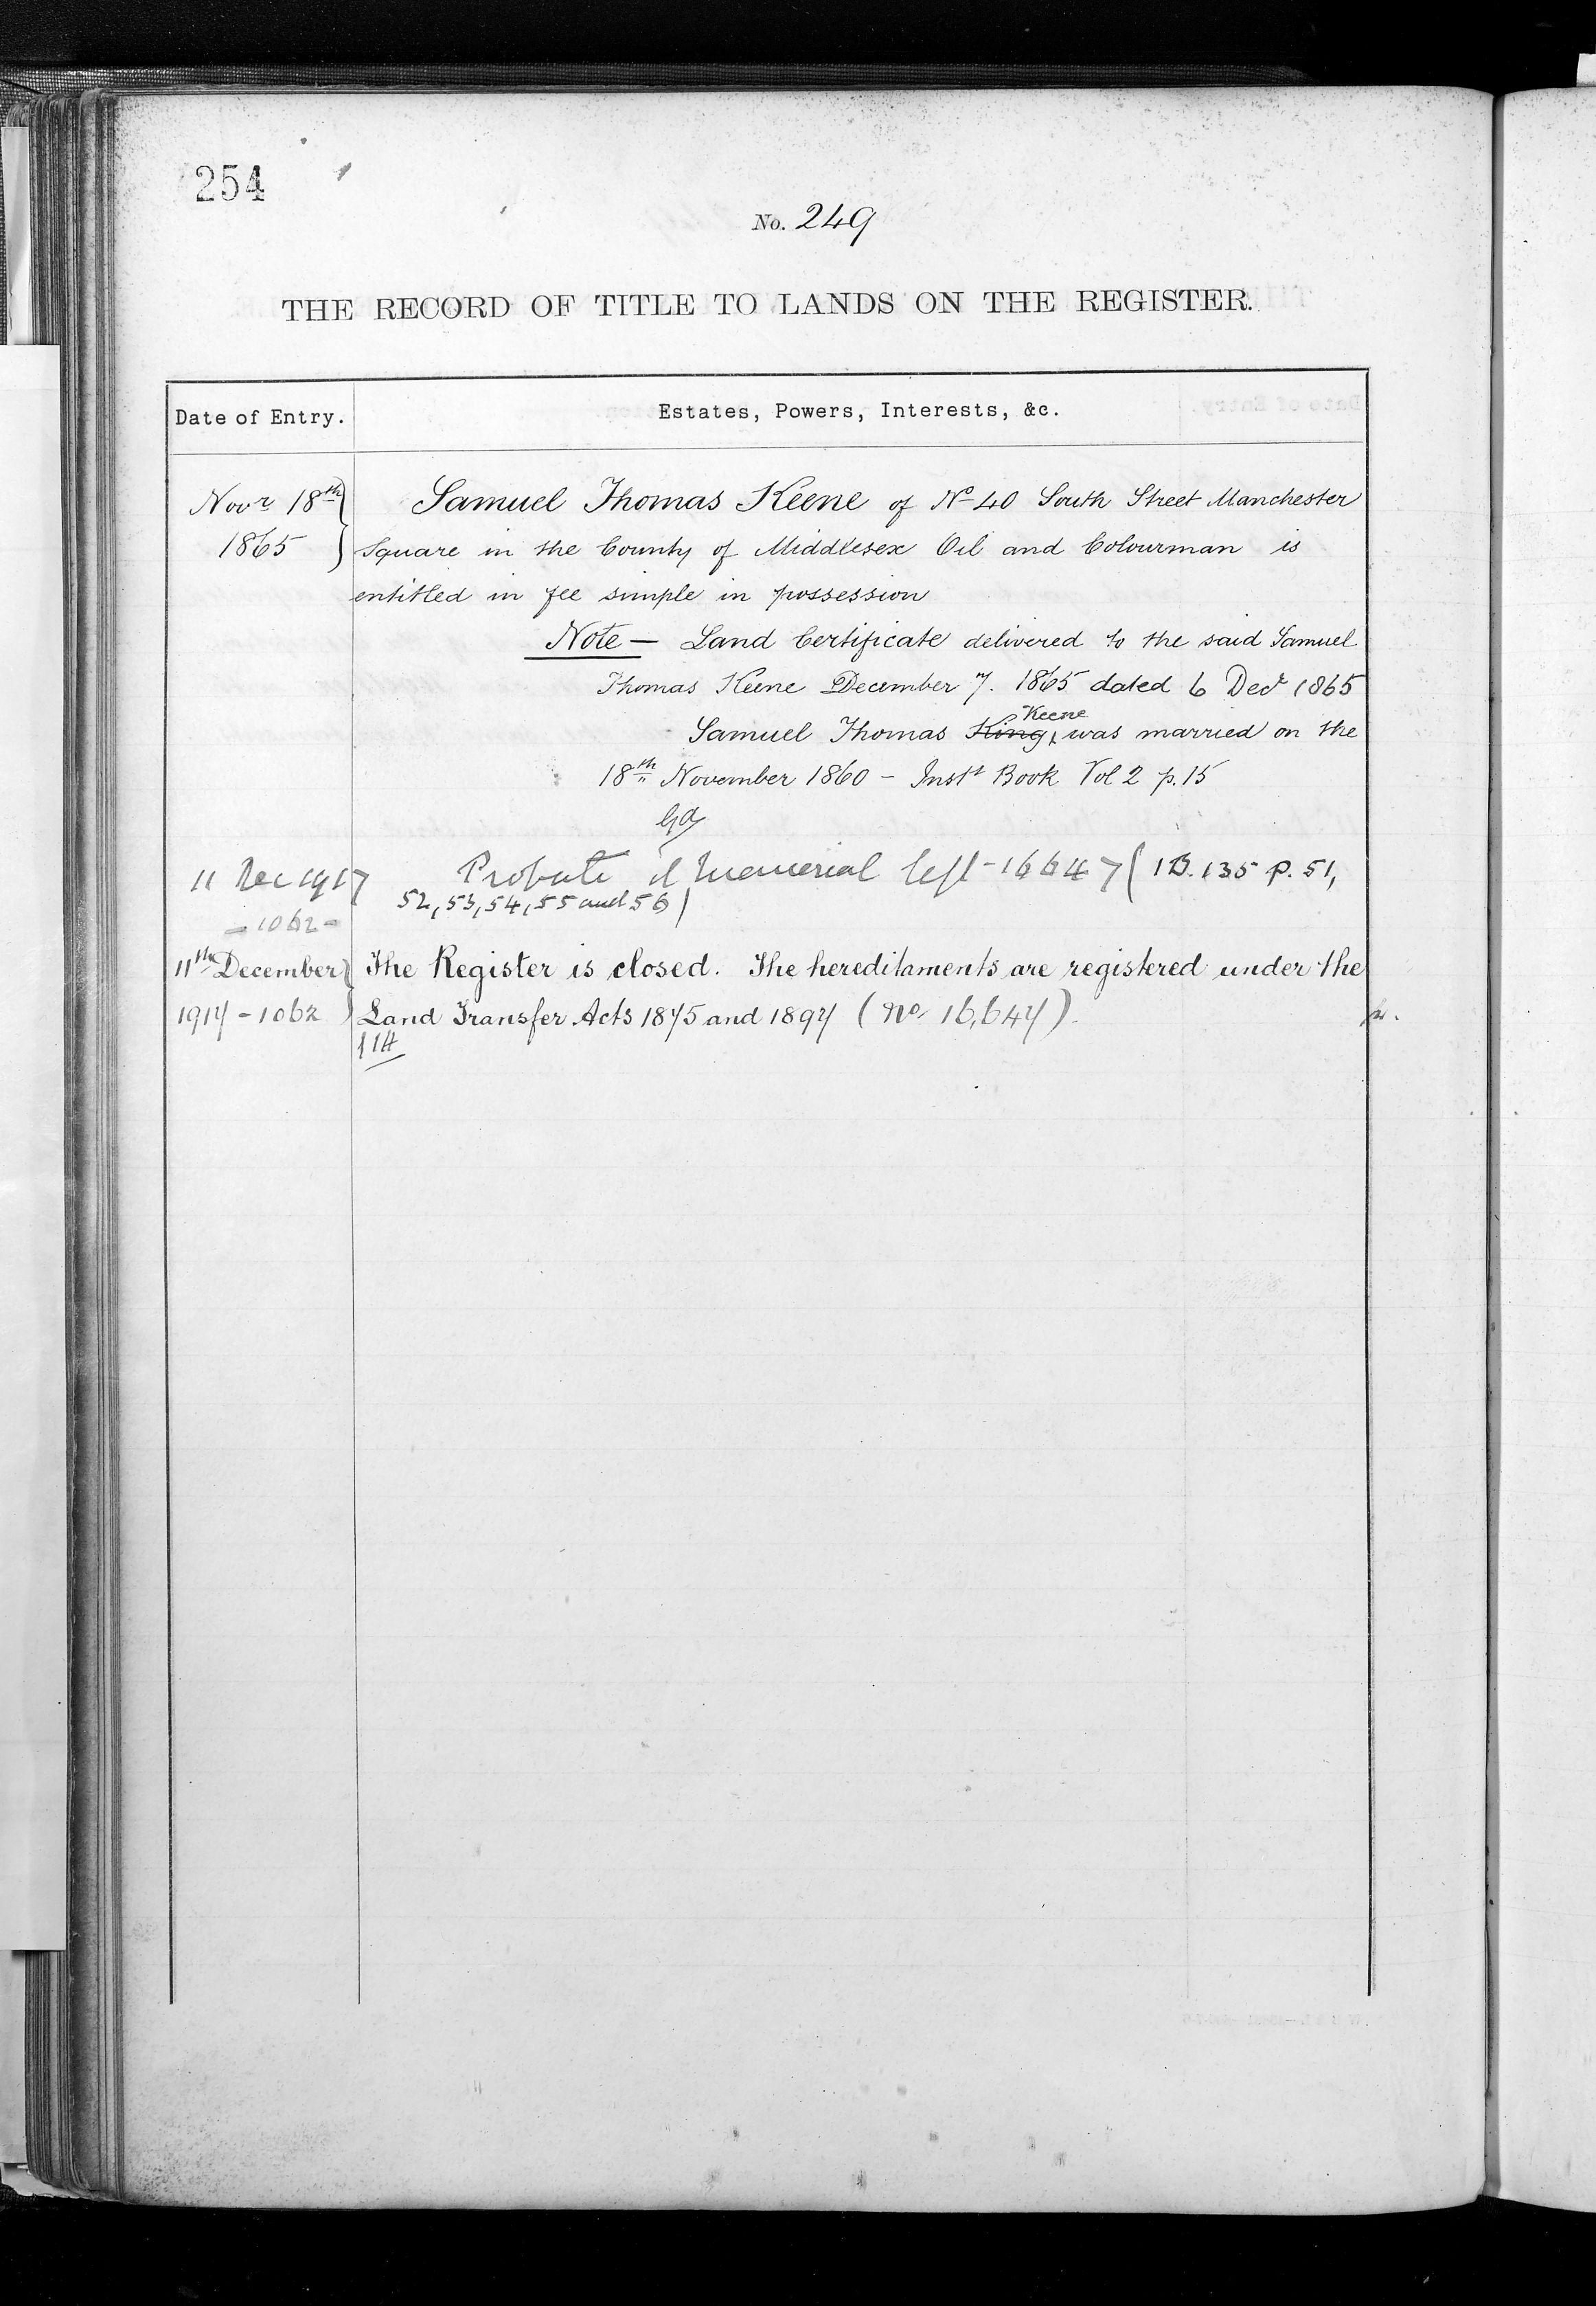 254
No. 249
THE RECORD OF TITLE TO LANDS ON THE REGISTER.
Date of Entry.
Estates, Powers, Interests, &c.
Novr 18th
1865
Samuel Thomas Keene of No 40 South Street Manchester
Square in the County of Middlesex Oil and Colourman is
entitled in fee simple in possession
Note — Land Certificate delivered to the said Samuel
Thomas Keene December 7. 1865 dated 6 Decr 1865
Keene
Samuel Thomas King was married on the
18th November 1860 – Inst Book Vol 2 p. 15
11 Dec 1917
Probate & Memorial left – 16647 (IB. 135 p. 51,
52, 53, 54, 55 and 56)
– 1062 –
11th December
The Register is closed. The hereditaments are registered under the
1917 – 1062
Land Transfer Acts 1875 and 1897 (No. 16,647).